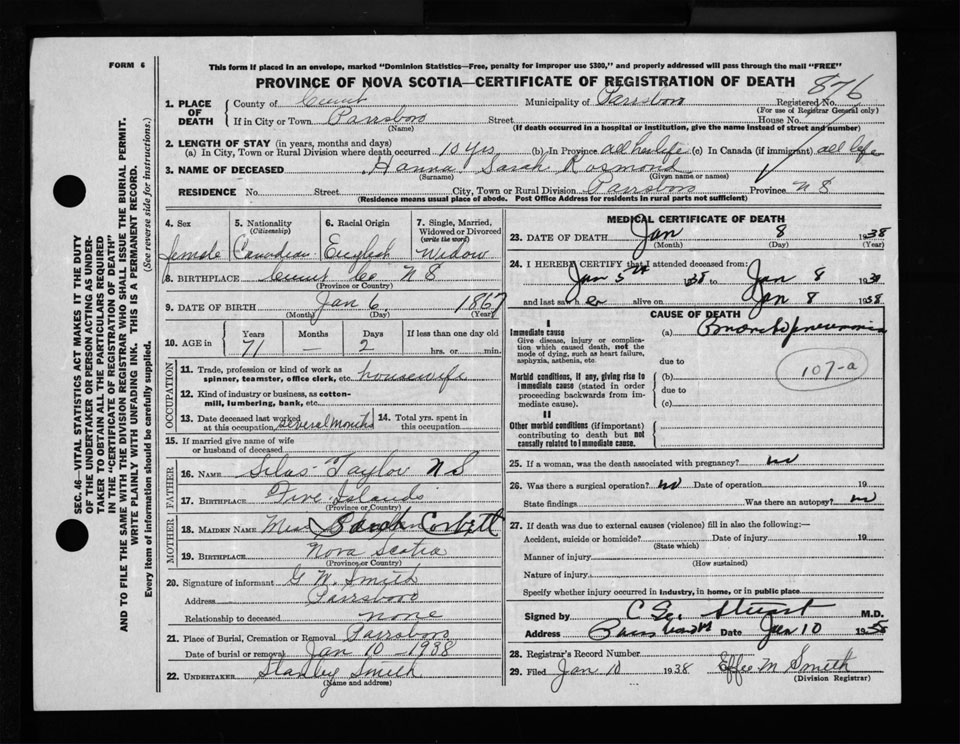 FORM 6
This form if placed in an envelope, marked "Dominion Statistics—Free, penalty for improper use $300," and properly addressed will pass through the mail "FREE"
PROVINCE OF NOVA SCOTIA—CERTIFICATE OF REGISTRATION OF DEATH
876
SEC. 46—VITAL STATISTICS ACT MAKES IT THE DUTY
OF THE UNDERTAKER OR PERSON ACTING AS UNDER-
TAKER TO OBTAIN ALL THE PARTICULARS REQUIRED
IN THE "CERTIFICATE OF REGISTRATION OF DEATH"
AND TO FILE THE SAME WITH THE DIVISION REGISTRAR WHO SHALL ISSUE THE BURIAL PERMIT.
WRITE PLAINLY WITH UNFADING INK. THIS IS A PERMANENT RECORD.
Every item of information should be carefully supplied. (See reverse side for instructions.)
1. PLACE OF DEATH
County of Cumb Municipality of Parrsboro Registered No.
(For use of Registrar General only)
If in City or Town Parrsboro Street House No.
(Name) (If death occurred in a hospital or institution, give the name instead of street and number)
2. LENGTH OF STAY (in years, months and days)
(a) In City, Town or Rural Division where death occurred 10 yrs (b) In Province all her life (c) In Canada (if immigrant) all life
3. NAME OF DECEASED Hanna Sarah Rosmond
(Surname) (Given name or names)
RESIDENCE No. Street City, Town or Rural Division Parrsboro Province N S
(Residence means usual place of abode. Post Office Address for residents in rural parts not sufficient)
4. Sex 5. Nationality (Citizenship) 6. Racial Origin 7. Single, Married, Widowed or Divorced (write the word)
female Canadian English Widow
8. BIRTHPLACE Cumb Co N S
(Province or Country)
9. DATE OF BIRTH Jan 6 1867
(Month) (Day) (Year)
10. AGE in Years Months Days If less than one day old
71 — 2 hrs. or min.
OCCUPATION
11. Trade, profession or kind of work as
spinner, teamster, office clerk, etc. housewife
12. Kind of industry or business, as cotton-
mill, lumbering, bank, etc.
13. Date deceased last worked
at this occupation several months
14. Total yrs. spent in
this occupation
15. If married give name of wife
or husband of deceased
FATHER
16. NAME Silas Taylor N S
17. BIRTHPLACE Five Islands
(Province or Country)
MOTHER
18. MAIDEN NAME Miss Corbett
19. BIRTHPLACE Nova Scotia
(Province or Country)
20. Signature of informant G W Smith
Address Parrsboro
Relationship to deceased none
21. Place of Burial, Cremation or Removal Parrsboro
Date of burial or removal Jan 10 - 1938
22. UNDERTAKER Stanley Smith
(Name and address)
MEDICAL CERTIFICATE OF DEATH
23. DATE OF DEATH Jan 8 1938
(Month) (Day) (Year)
24. I HEREBY CERTIFY that I attended deceased from:
Jan 5th 1938 to Jan 8 1938
and last saw her alive on Jan 8 1938
CAUSE OF DEATH
I
Immediate cause (a) Bronchopneumonia
Give disease, injury or complica-
tion which caused death, not the
mode of dying, such as heart failure,
asphyxia, asthenia, etc.
due to
Morbid conditions, if any, giving rise to (b)
immediate cause (stated in order
proceeding backwards from im-
mediate cause).
due to
(c)
107-a
II
Other morbid conditions (if important)
contributing to death but not
causally related to immediate cause.
25. If a woman, was the death associated with pregnancy? no
26. Was there a surgical operation? no Date of operation 19
State findings Was there an autopsy? no
27. If death was due to external causes (violence) fill in also the following:—
Accident, suicide or homicide? Date of injury 19
(State which)
Manner of injury
(How sustained)
Nature of injury
Specify whether injury occurred in industry, in home, or in public place
Signed by Stuart M.D.
Address Parrsboro Date Jan 10 1938
28. Registrar's Record Number
29. Filed Jan 10 1938 Effie M Smith
(Division Registrar)